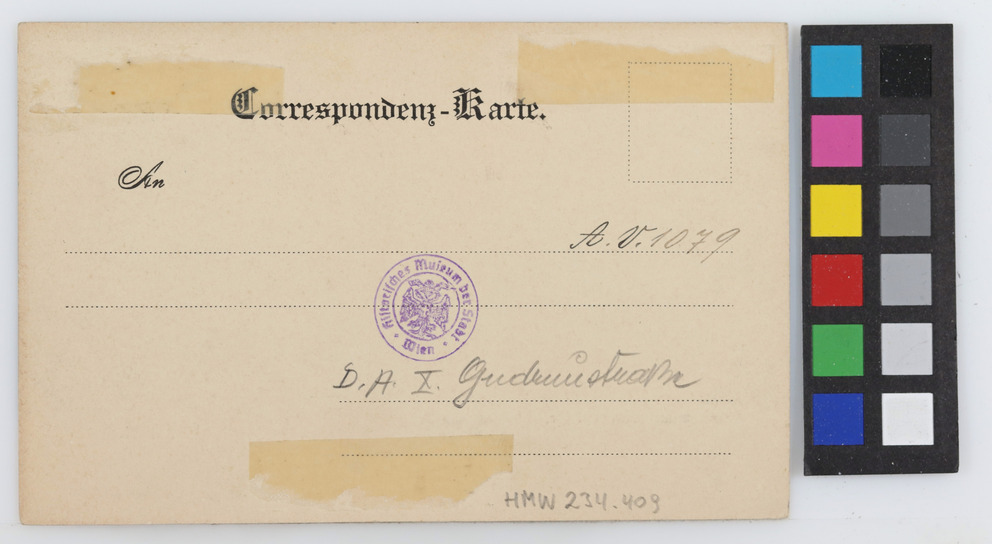 Correspondenz-Karte.
An
A. V. 1079
Historisches Museum der Stadt
Wien
D. A. X. Gudrunstraße
HMW 234.409